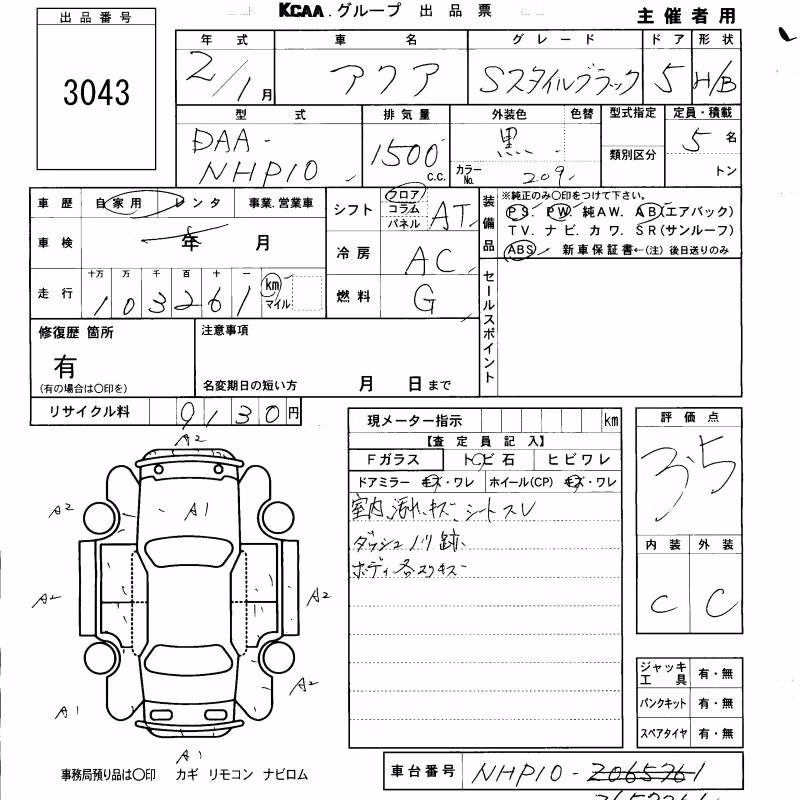 KCAA.グループ 出品票
主催者用
出品番号
3043
年式 車名 グレード ドア 形状
2/1月 アクア Sスタイルブラック 5 H/B
型式 排気量 外装色 色替 型式指定 定員・積載
DAA- 1500 c.c. 黒 類別区分 5名
NHP10 カラーNo. 209 トン
車歴 自家用 レンタ 事業.営業車
シフト フロア コラム パネル AT
装備品
※純正のみ○印をつけて下さい。
PS. PW. 純AW. AB(エアバック)
TV. ナビ. カワ. SR(サンルーフ)
ABS 新車保証書←(注)後日送りのみ
車検 年 月
冷房 AC
走行 十万 万 千 百 十 一
103261 km マイル
燃料 G
セールスポイント
修復歴 箇所
有
(有の場合は○印を)
注意事項
名変期日の短い方 月 日まで
リサイクル料 9130円
現メーター指示 km
【査定員記入】
Fガラス トビ石 ヒビワレ
ドアミラー キズ・ワレ ホイール(CP) キズ・ワレ
室内汚れ、キズ シートスレ
ダッシュノリ跡
ボディ各スリキズ
評価点
3.5
内装 外装
C C
A2
A2 A1
A2 A2
A2
A1
A1
ジャッキ工具 有・無
パンクキット 有・無
スペアタイヤ 有・無
事務局預り品は○印 カギ リモコン ナビロム
車台番号 NHP10-